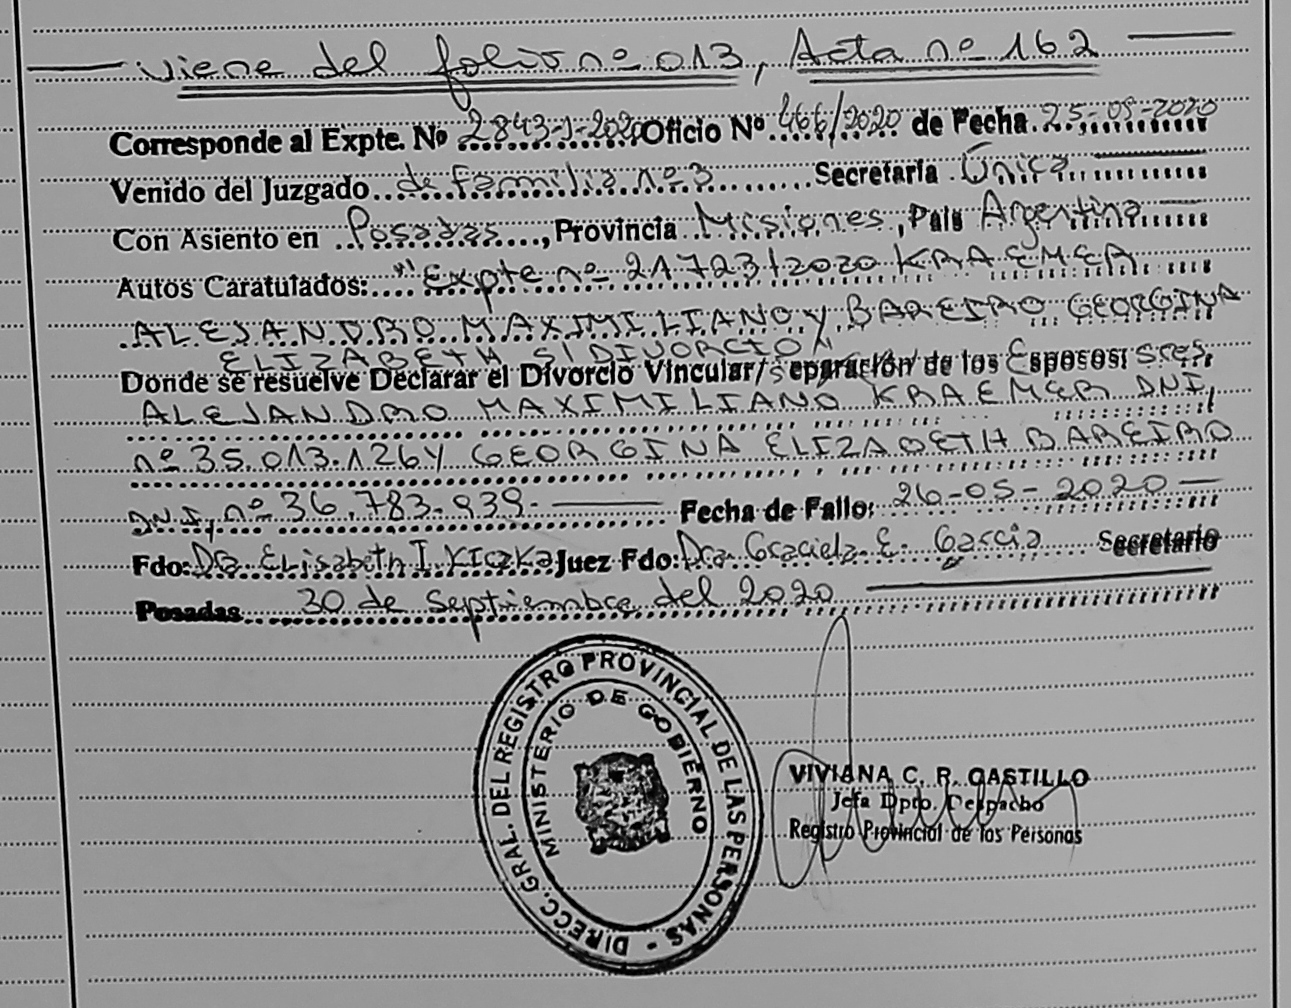 viene del folio nº 013, Acta nº 162
Corresponde al Expte. Nº 2843-1-2020 Oficio Nº 466/2020 de Fecha 25-09-2020
Venido del Juzgado de Familia nº 3 Secretaría Única
Con Asiento en Posadas, Provincia Misiones, País Argentina
Autos Caratulados: "Expte nº 21723/2020 KRAEMER
ALEJANDRO MAXIMILIANO Y BAREIRO GEORGINA
ELIZABETH S/DIVORCIO"
Donde se resuelve Declarar el Divorcio Vincular/Separación de los Esposos: sres.
ALEJANDRO MAXIMILIANO KRAEMER DNI,
nº 35.013.126 Y GEORGINA ELIZABETH BAREIRO
DNI, nº 36.783.939- Fecha de Fallo: 26-05-2020
Fdo: Dra. Elisabeth I. Kiczka Juez Fdo: Dra. Graciela E. Garcia Secretario
Posadas 30 de Septiembre del 2020
DIRECC. GRAL. DEL REGISTRO PROVINCIAL DE LAS PERSONAS -
MINISTERIO DE GOBIERNO
VIVIANA C. R. CASTILLO
Jefa Dpto. Despacho
Registro Provincial de las Personas